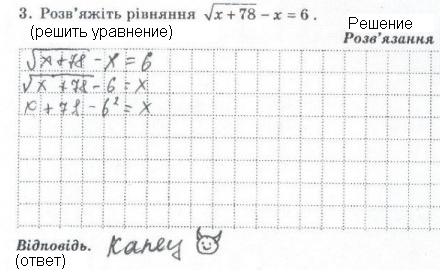 3. Розв'яжіть рівняння √x+78 − x = 6 .
(решить уравнение)
Решение
Розв'язання
√x+78 - x = 6
√x+78 - 6 = x
x + 78 - 6² = x
Відповідь. капец
(ответ)